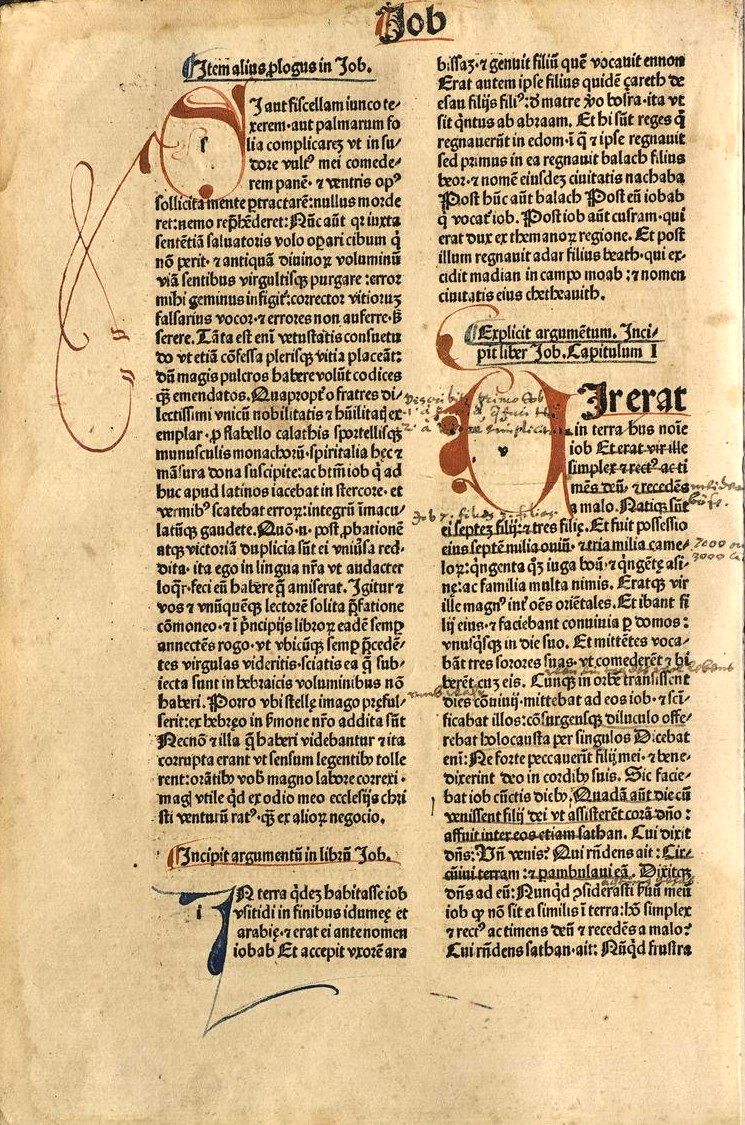 Job
Itẽ alius ꝓlogus in Job.
SI aut fiscellam iunco te-
xerem·aut palmarum fo
lia complicareʒ vt in su/
dore vultꝰ mei comede-
rem panẽ·⁊ ventris opꝰ
sollicita mente ꝑtractarẽ:nullus morde
ret:nemo rep̃hẽderet:Nũc aũt qꝛ iuxta
sentẽtiã saluatoris volo oꝑari cibum q̃
nõ perit·⁊ antiquã diuinoꝝ voluminũ
viã sentibus virgultisqꝫ purgare:error
mihi geminus infigit᷑:corrector vitioruʒ
falsarius vocor·⁊ errores non auferre·ß
serere. Tãta est eni᷑ vetustatis consuetu
do vt etiã cõfessa plerisqꝫ vitia placeãt:
dũ magis pulcros habere volũt codices
q̃ꝫ emendatos. Quapropt᷑ o fratres di/
lectissimi vnicũ nobilitatis ⁊ hũilitat᷑ ex-
emplar·ꝓ flabello calathis sportellisqꝫ
munusculis monachoꝝ·spiritalia hęc ⁊
mãsura dona suscipite:ac btm̃ iob q̇ ad
huc apud latinos iacebat in stercore·et
vermibꝰ scatebat erroꝝ:integrũ im̃acu/
latũqꝫ gaudete. Quõ·n·post ꝓbationẽ
atqꝫ victoriã duplicia sũt ei vniu᷑sa red-
dita·ita ego in lingua nr̃a vt audacter
loq̃r·feci eũ habere q̃ amiserat. Igitur ⁊
vos ⁊ vnũquẽqꝫ lectorẽ solita p̃fatione
cõmoneo·⁊ ĩ p̃ncipijs libroꝝ eadẽ semꝑ
annectẽs rogo·vt vbicũqꝫ semꝑ p̃cedẽ-
tes virgulas videritis·sciatis ea q̃ sub/
iecta sunt in hebraicis voluminibus nõ
haberi. Porro vbi stellę imago pręful-
serit:ex hebręo in ẜmone nr̃o addita sũt
Necnõ ⁊ illa q̃ haberi videbantur ⁊ ita
corrupta erant vt sensum legentibꝰ tolle
rent:orãtibꝰ vob᷑ magno labore correxi·
mag᷑ vtile q̇d ex odio meo ecclesijs chri
sti venturũ ratꝰ·q̃ꝫ ex alioꝝ negocio.
Incipit argumentũ in librũ Job.
IN terra q̇deʒ habitasse iob
vsitidi in finibus idumeę et
arabię·⁊ erat ei ante nomen
iobab Et accepit vxorẽ ara
bissaʒ·⁊ genuit filiũ quẽ vocauit ennon
Erat autem ipse filius quidẽ çareth de
esau filijs filiꝰ:ď matre ỽo bosra·ita vt
sit q̃ntus ab abraam. Et hi sũt reges q̃
regnauerũt in edom·ĩ q̃ ⁊ ipse regnauit
sed primus in ea regnauit balach filius
beor·⁊ nomẽ eiusdeʒ ciuitatis nachaba
Post hũc aũt balach Post eũ iobab
q̃ vocat᷑ iob. Post iob aũt cusram·qui
erat dux ex themanoꝝ regione. Et post
illum regnauit adar filius beath·qui ex-
cidit madian in campo moab:⁊ nomen
ciuitatis eius chetheauith.
Explicit argumẽtum. Inci/
pit liber Job. Capitulum I
VIr erat
in terra hus noĩe
iob Et erat vir ille
simplex ⁊ rectꝰ ac ti
mẽs deũ·⁊ recedẽs
a malo. Natiqꝫ sũt
ei septeʒ filij:⁊ tres filię. Et fuit possessio
eius septẽ milia ouiũ·⁊ tria milia came/
loꝝ:q̃ngenta q̃ʒ iuga boũ·⁊ q̃ngẽtę asi-
nę:ac familia multa nimis. Eratqꝫ vir
ille magnꝰ int᷑ oẽs oriẽtales. Et ibant fi
lij eius·⁊ faciebant conuiuia ꝑ domos:
vnusq̃sqꝫ in die suo. Et mittẽtes voca/
bãt tres sorores suas·vt comederẽt ⁊ bi
berẽt cuʒ eis. Cũnqꝫ in orbẽ transissent
dies cõuiuij·mittebat ad eos iob·⁊ scĩ-
ficabat illos:cõsurgensqꝫ diluculo offe/
rebat holocausta per singulos Dicebat
eni᷑: Ne forte peccauerĩt filij mei·⁊ bene-
dixerint deo in cordibꝰ suis. Sic facie-
bat iob cũctis diebꝰ. Quadã aũt die cũ
venissent filij dei vt assisterẽt corã dño:
affuit inter eos etiam sathan. Cui dixit
dñs: Vñ venis? Qui rñdens ait: Cir-
cũiui terram:⁊ ꝑambulaui eã. Dixitqꝫ
dñs ad eũ: Nunq̇d ↄsiderasti ẜuũ meũ
iob ꝙ nõ sit ei similis ĩ terra:hõ simplex
⁊ rectꝰ ac timens deũ ⁊ recedẽs a malo?
Cui rñdens sathan·ait: Nũq̇d frustra